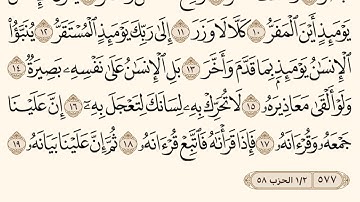 يَوۡمَئِذٍ أَيۡنَ ٱلۡمَفَرُّ ١٠ كَلَّا لَا وَزَرَ ١١ إِلَىٰ رَبِّكَ يَوۡمَئِذٍ ٱلۡمُسۡتَقَرُّ ١٢ يُنَبَّؤُاْ
ٱلۡإِنسَٰنُ يَوۡمَئِذِۭ بِمَا قَدَّمَ وَأَخَّرَ ١٣ بَلِ ٱلۡإِنسَٰنُ عَلَىٰ نَفۡسِهِۦ بَصِيرَةٞ ١٤
وَلَوۡ أَلۡقَىٰ مَعَاذِيرَهُۥ ١٥ لَا تُحَرِّكۡ بِهِۦ لِسَانَكَ لِتَعۡجَلَ بِهِۦٓ ١٦ إِنَّ عَلَيۡنَا
جَمۡعَهُۥ وَقُرۡءَانَهُۥ ١٧ فَإِذَا قَرَأۡنَٰهُ فَٱتَّبِعۡ قُرۡءَانَهُۥ ١٨ ثُمَّ إِنَّ عَلَيۡنَا بَيَانَهُۥ ١٩
٥٧٧ ١/٢ الحزب ٥٨